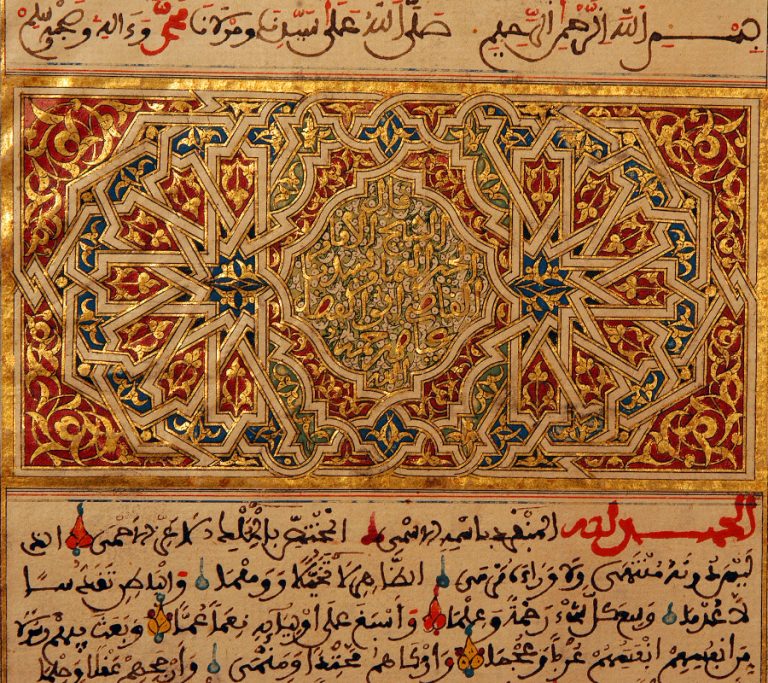 بسم الله الرحمن الرحيم صلى الله على سيدنا ومولانا محمد وءاله وصحبه وسلم
قال
الشيخ الامام
القاضي ابو الفضل
عياض رحمه
الله
الحمد لله المنفرد باسمه الاسمى المختص بالملك الاعز الاحمى الذي
ليس دونه منتهى ولا وراءه مرمى الظاهر لا تخيلا ووهما والباطن تقدسا
لا عدما وسع كل شيء رحمة وعلما وأسبغ على أوليايه نعما عما وبعث فيهم رسولا
من انفسهم انفسهم عربا وعجما وأزكاهم محتدا ومنمى وأرجحهم عقلا وحلما